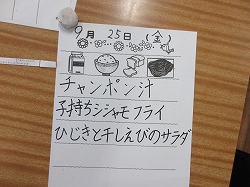 9月 25日 (金)
チャンポン汁
子持ちシシャモフライ
ひじきと干しえびのサラダ